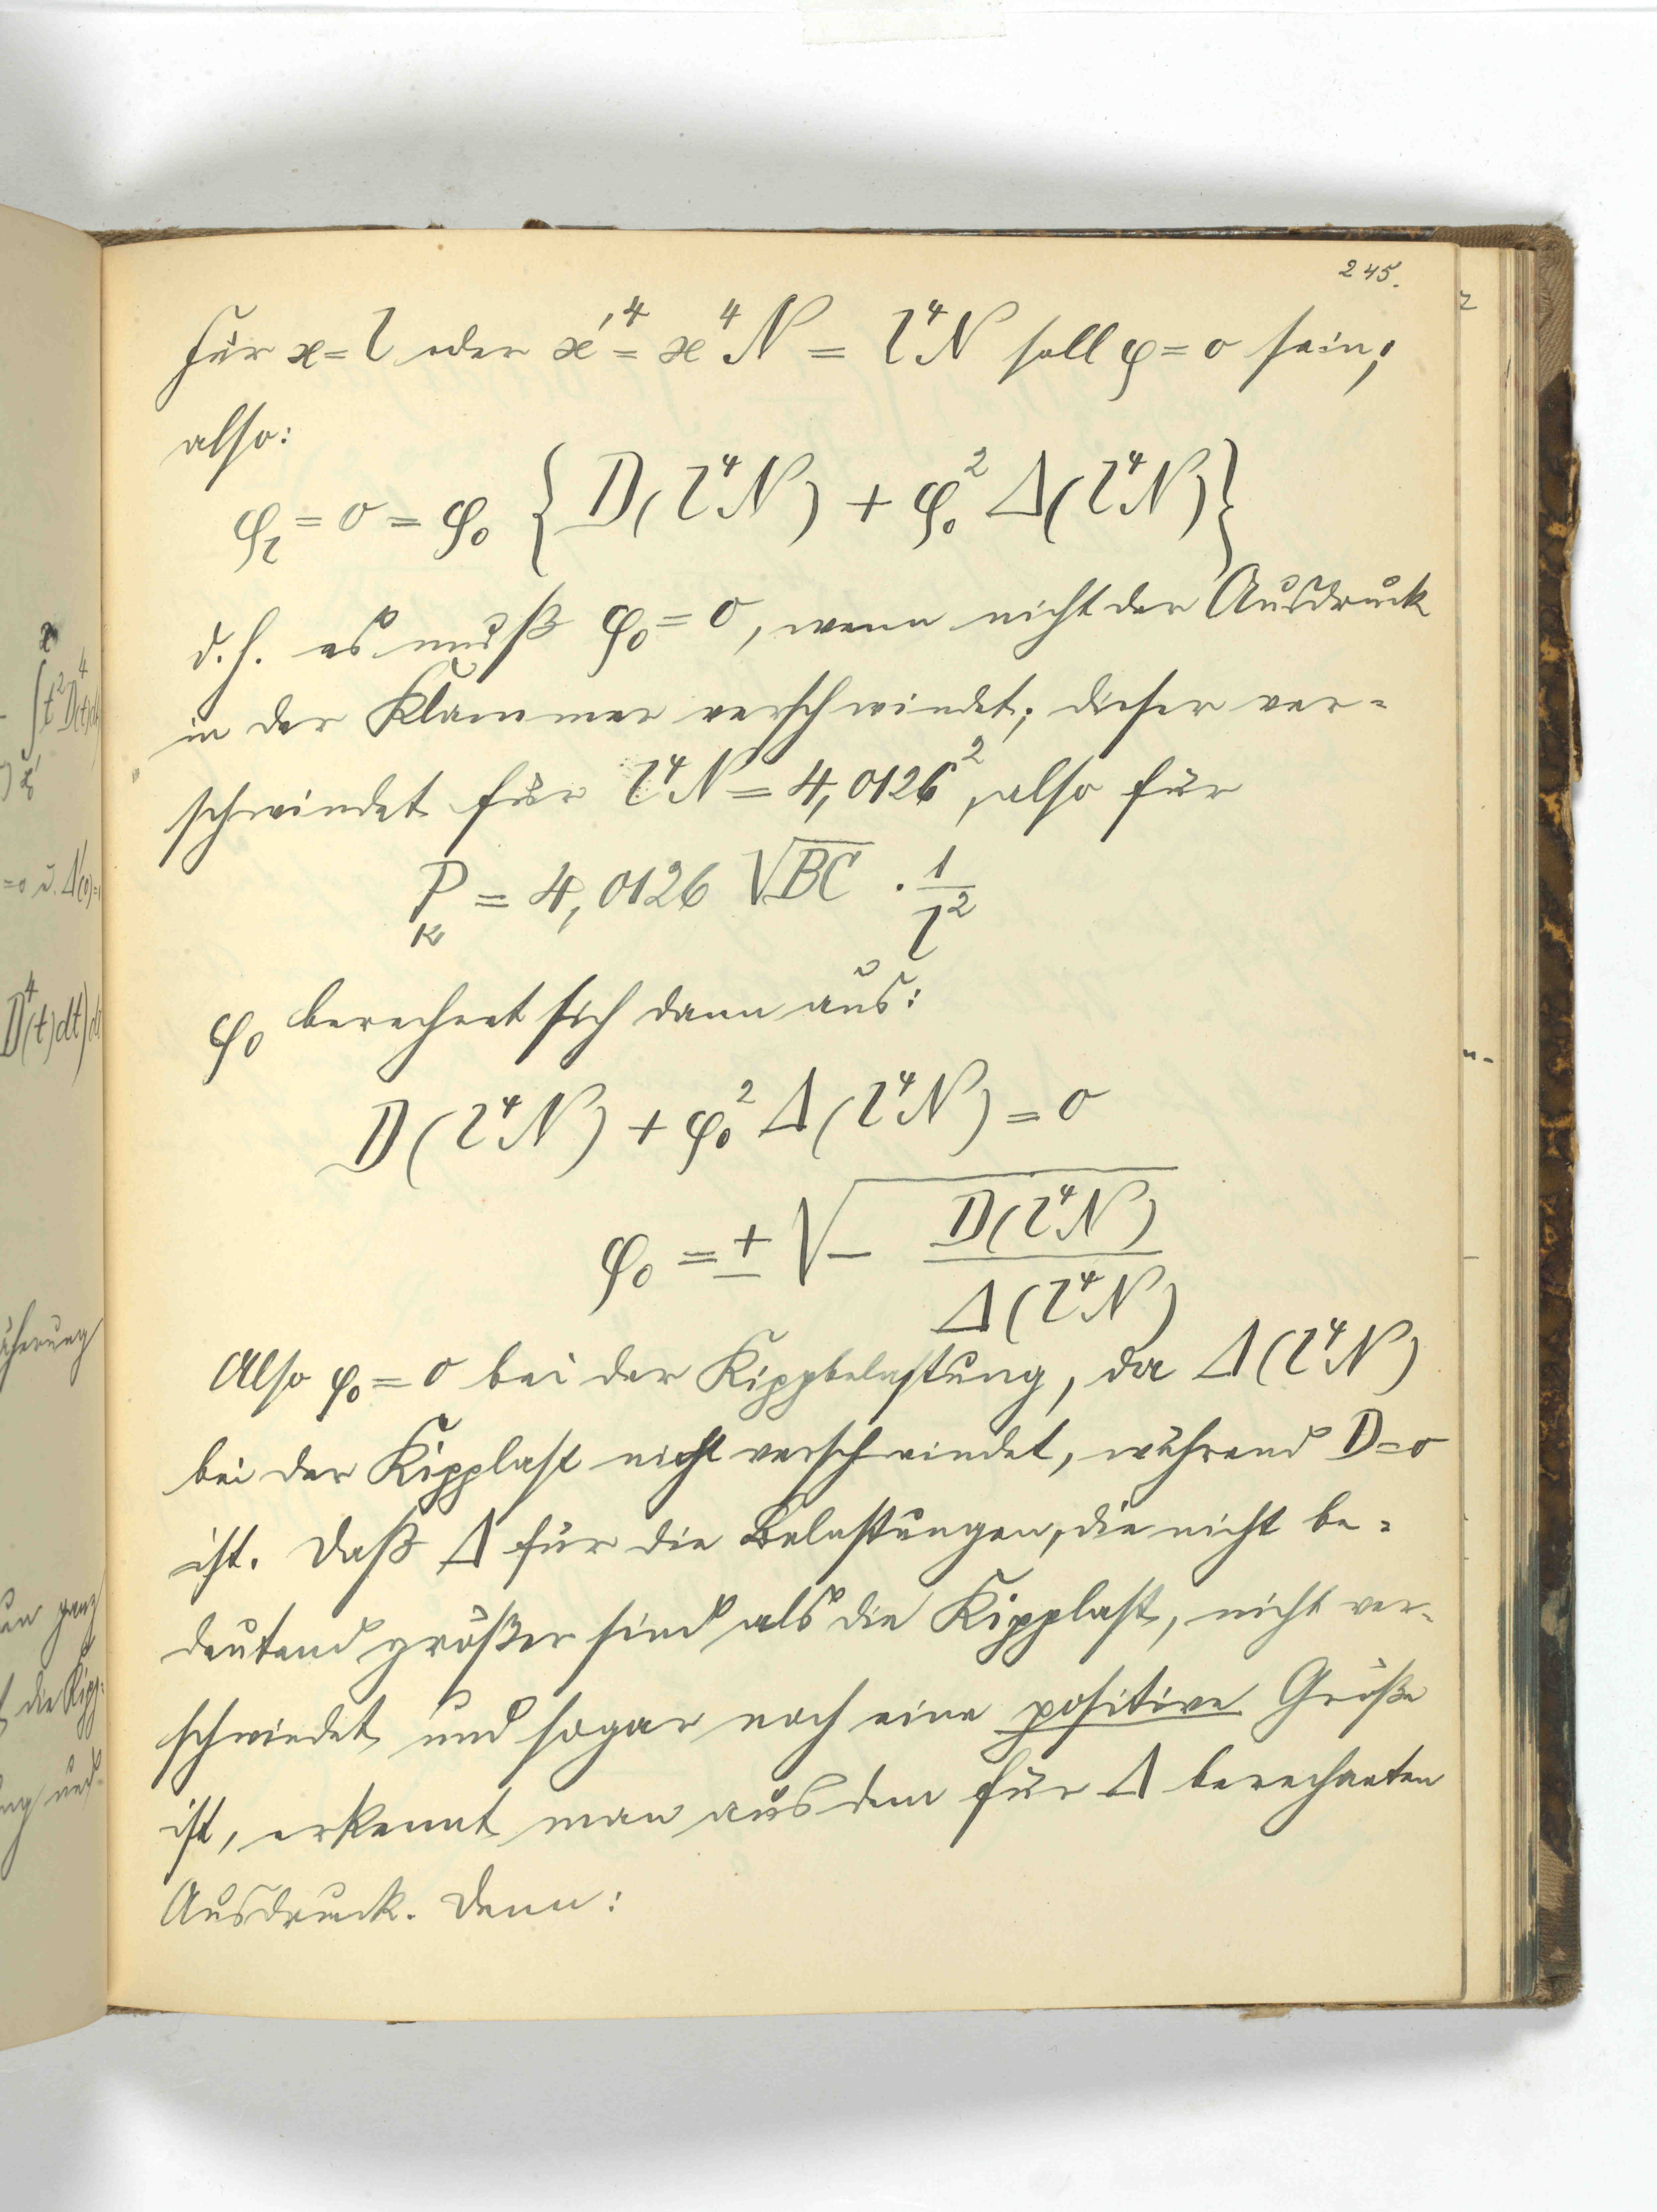 245.
Für x = l oder x'⁴ = x⁴N = l⁴N soll φ = 0 sein;
also:
φₗ = 0 = φ₀ { D(l⁴N) + φ₀² Δ(l⁴N) }
d. h. es muß φ₀ = 0, wenn nicht der Ausdruck
in der Klammer verschwindet; dieser ver=
schwindet für l⁴N = 4,0126², also für
P_K = 4,0126 √BC · 1/l²
φ₀ berechnet sich dann aus:
D(l⁴N) + φ₀² Δ(l⁴N) = 0
φ₀ = ± √(- D(l⁴N)/Δ(l⁴N))
Also φ₀ = 0 bei der Kippbelastung, da Δ(l⁴N)
bei der Kipplast nicht verschwindet, während D = 0
ist. Daß Δ für die Belastungen, die nicht be=
deutend größer sind als die Kipplast, nicht ver=
schwindet und sogar noch eine positive Größe
ist, erkennt man aus dem für Δ berechneten
Ausdruck. Denn: